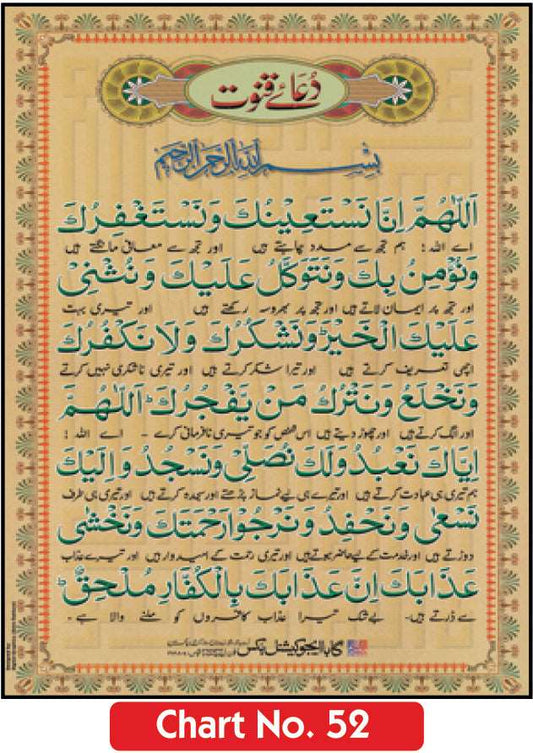 دُعائے قنوت
بِسْمِ اللهِ الرَّحْمٰنِ الرَّحِيْمِ
اَللّٰهُمَّ اِنَّا نَسْتَعِيْنُكَ وَنَسْتَغْفِرُكَ
اے اللہ! ہم تجھ سے مدد چاہتے ہیں اور تجھ سے معافی مانگتے ہیں
وَنُؤْمِنُ بِكَ وَنَتَوَكَّلُ عَلَيْكَ وَنُثْنِىْ
اور تجھ پر ایمان لاتے ہیں اور تجھ پر بھروسہ رکھتے ہیں اور تیری بہت
عَلَيْكَ الْخَيْرَؕ وَنَشْكُرُكَ وَلَا نَكْفُرُكَ
اچھی تعریف کرتے ہیں اور تیرا شکر کرتے ہیں اور تیری ناشکری نہیں کرتے
وَنَخْلَعُ وَنَتْرُكُ مَنْ يَّفْجُرُكَؕ اَللّٰهُمَّ
اور الگ کرتے ہیں اور چھوڑ دیتے ہیں اس شخص کو جو تیری نافرمانی کرے ۔ اے اللہ !
اِيَّاكَ نَعْبُدُ وَلَكَ نُصَلِّىْ وَنَسْجُدُ وَاِلَيْكَ
ہم تیری ہی عبادت کرتے ہیں اور تیرے ہی لیے نماز پڑھتے اور سجدہ کرتے ہیں اور تیری ہی طرف
نَسْعٰى وَنَحْفِدُ وَنَرْجُوْا رَحْمَتَكَ وَنَخْشٰى
دوڑتے ہیں اور خدمت کے لیے حاضر ہوتے ہیں اور تیری رحمت کے امیدوار ہیں اور تیرے عذاب
عَذَابَكَ اِنَّ عَذَابَكَ بِالْكُفَّارِ مُلْحِقٌؕ
سے ڈرتے ہیں۔ بے شک تیرا عذاب کافروں کو ملنے والا ہے ۔
گابا ایجوکیشنل بکس
Chart No. 52